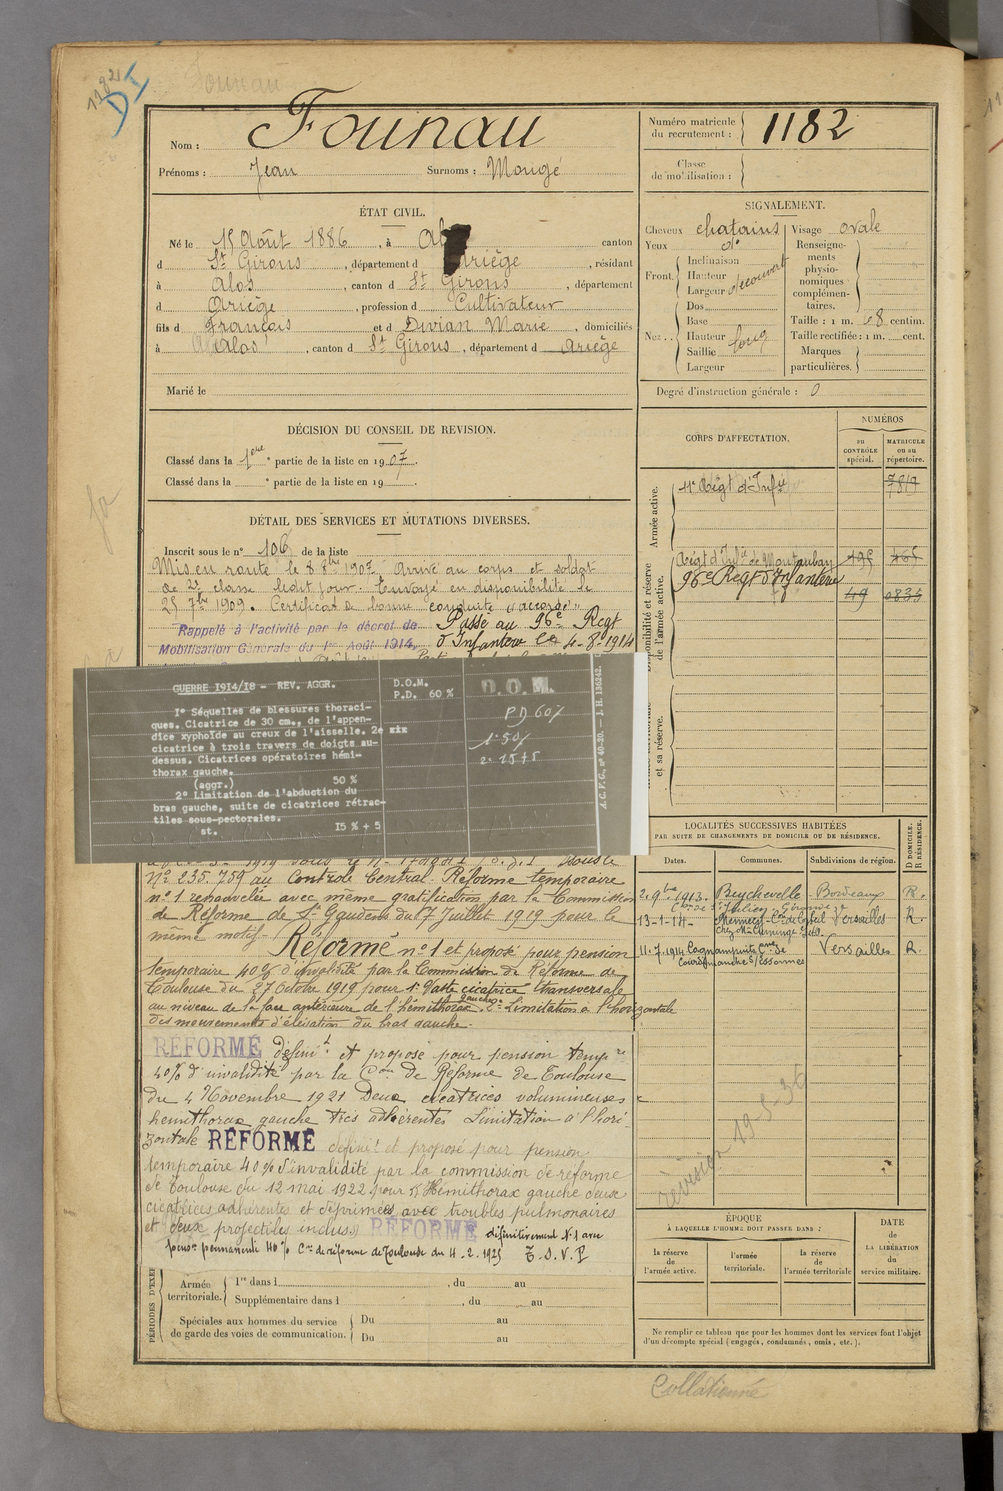 1182
D I
Founau
Nom : Founau
Prénoms : Jean Surnoms : Mougé
ÉTAT CIVIL.
Né le 15 Août 1886, à canton
d St Girons, département d Ariège, résidant
à Alos, canton d St Girons, département
d Ariège, profession d Cultivateur
fils d François et d Divian Marie, domiciliés
à Alos, canton d St Girons, département d Ariège
Marié le
DÉCISION DU CONSEIL DE REVISION.
Classé dans la 1ère partie de la liste en 1907.
Classé dans la e partie de la liste en 19 .
DÉTAIL DES SERVICES ET MUTATIONS DIVERSES.
Inscrit sous le n° 106 de la liste
Mis en route le 8 8bre 1907 Arrivé au corps et soldat
de 2e classe ledit jour. Envoyé en disponibilité le
25 7bre 1909. Certificat de bonne conduite "accordé"
Rappelé à l'activité par le décret de Passé au 96e Regt
Mobilisation Générale du 1er Août 1914. d'Infanterie le 4-8-1914
GUERRE 1914/18 - REV. AGGR.
I° Séquelles de blessures thoraci-
ques. Cicatrice de 30 cm., de l'appen-
dice xyphoïde au creux de l'aisselle. 2e xix
cicatrice à trois travers de doigts au-
dessus. Cicatrices opératoires hémi-
thorax gauche.
(aggr.) 50 %
2° Limitation de l'abduction du
bras gauche, suite de cicatrices rétrac-
tiles sous-pectorales.
st. I5 % + 5
D.O.M.
P.D. 60 %
D.O.M.
PD 60%
1° 50%
2° 15+5
A.C.F.G., n° 40-30. — J.H. 136242.
N° 235.759 au Contrôle Central. Réforme temporaire
n° 1 renouvelée avec même gratification par la Commission
de Réforme de St Gaudens du 7 Juillet 1919 pour le
même motif. Réformé n° 1 et proposé pour pension
temporaire 40% d'invalidité par la Commission de Réforme de
Toulouse du 27 Octobre 1919 pour 1° Vaste cicatrice transversale
au niveau de la face antérieure de l'hémithorax gauche 2° Limitation à l'horizontale
des mouvements d'élévation du bras gauche.
RÉFORMÉ définit et proposé pour pension tempre
40% d'invalidité par la Con de Réforme de Toulouse
du 4 Novembre 1921 Deux cicatrices volumineuses
hemithorax gauche très adhérentes Limitation à l'hori-
zontale RÉFORMÉ définit et proposé pour pension
temporaire 40% d'invalidité par la commission de réforme
de Toulouse du 12 mai 1922 pour Hémithorax gauche deux
cicatrices adhérentes et déprimées avec troubles pulmonaires
et deux projectiles inclus. RÉFORMÉ définitivement N°1 avec
pension permanente 40% Con de réforme de Toulouse du 4.2.1925 T.S.V.P
PÉRIODES D'EXER
Armée territoriale. 1re dans l , du au
Supplémentaire dans l , du au
Spéciales aux hommes du service Du au
de garde des voies de communication. Du au
Numéro matricule
du recrutement : 1182
Classe
de mobilisation :
SIGNALEMENT.
Cheveux chatains Visage ovale
Yeux do
Front. Inclinaison
Hauteur
Largeur découvert
Nez.. Dos
Base
Hauteur
Saillie long
Largeur
Renseigne-
ments
physio-
nomiques
complémen-
taires.
Taille : 1 m. 68 centim.
Taille rectifiée : 1 m. cent.
Marques
particulières.
Degré d'instruction générale : 0
CORPS D'AFFECTATION.
NUMÉROS
au CONTRÔLE spécial.
MATRICULE ou au répertoire.
Armée active.
Régt d'Infie
Disponibilité et réserve
de l'armée active.
Régt d'Infie de Montauban
96e Regt d'Infanterie
49
et sa réserve.
LOCALITÉS SUCCESSIVES HABITÉES
PAR SUITE DE CHANGEMENTS DE DOMICILE OU DE RÉSIDENCE.
Dates. Communes. Subdivisions de région.
D DOMICILE.
R RÉSIDENCE.
2.9bre 1913. Beychevelle Bordeaux R.
St Julien Gironde
13-1-14 Mennecy Con de Corbeil Versailles R.
11.7.1914 Versailles R.
révision 19-5-36
ÉPOQUE
À LAQUELLE L'HOMME DOIT PASSER DANS :
la réserve de l'armée active.
l'armée territoriale.
la réserve de l'armée territoriale
DATE
de
LA LIBÉRATION
du
service militaire.
Ne remplir ce tableau que pour les hommes dont les services font l'objet
d'un décompte spécial (engagés, condamnés, omis, etc.).
Collationné